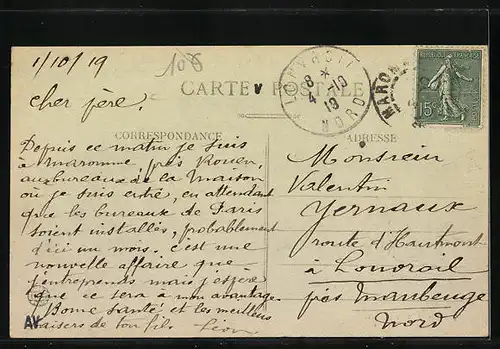 1/10/19
106
CARTE POSTALE
8 *
4 - 10
19
NORD
MAROM
15c
CORRESPONDANCE
ADRESSE
Cher père,
Depuis ce matin je suis
à Maromme, près Rouen,
aux bureaux de la Maison
où je suis entré, en attendant
que les bureaux de Paris
soient installés, probablement
d'ici un mois. C'est une
nouvelle affaire que
j'entreprends mais j'espère
que ce sera à mon avantage.
Bonne santé et les meilleurs
baisers de ton fils Léon
AV
Monsieur
Valentin
Yernaux
route d'Hautmont
à Louvroil
près Maubeuge
Nord